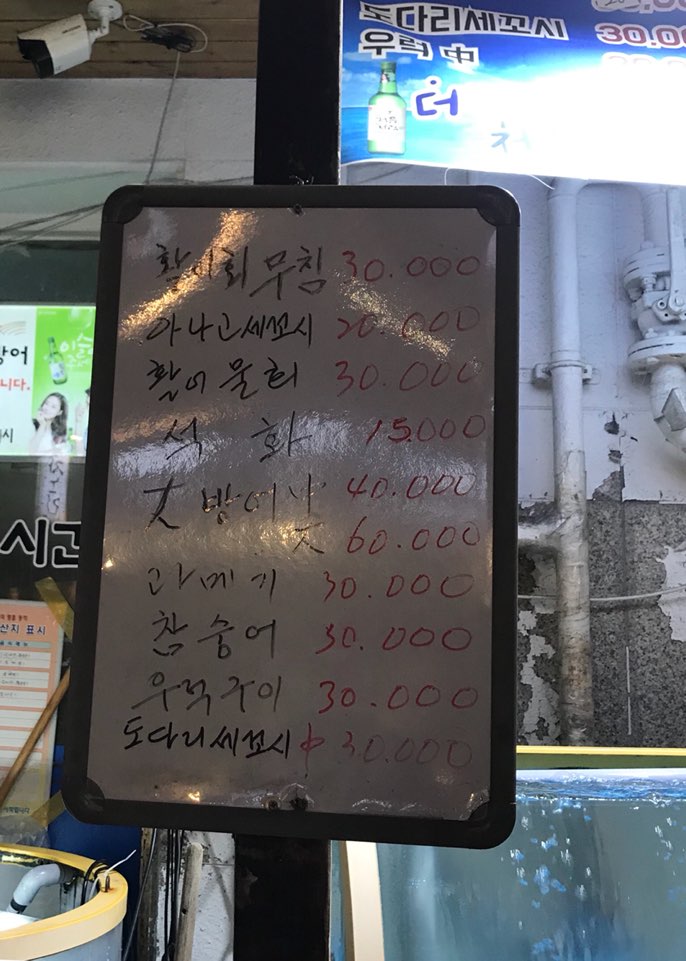 도다리세꼬시
30.00
우럭 中
더
활어회무침 30.000
아나고세꼬시 20.000
활어물회 30.000
석 화 15.000
大 방어 小 40.000
大 60.000
과메기 30.000
참숭어 30.000
우럭구이 30.000
도다리세꼬시 中 30.000
방어
니다.
이슬
시간
산지 표시